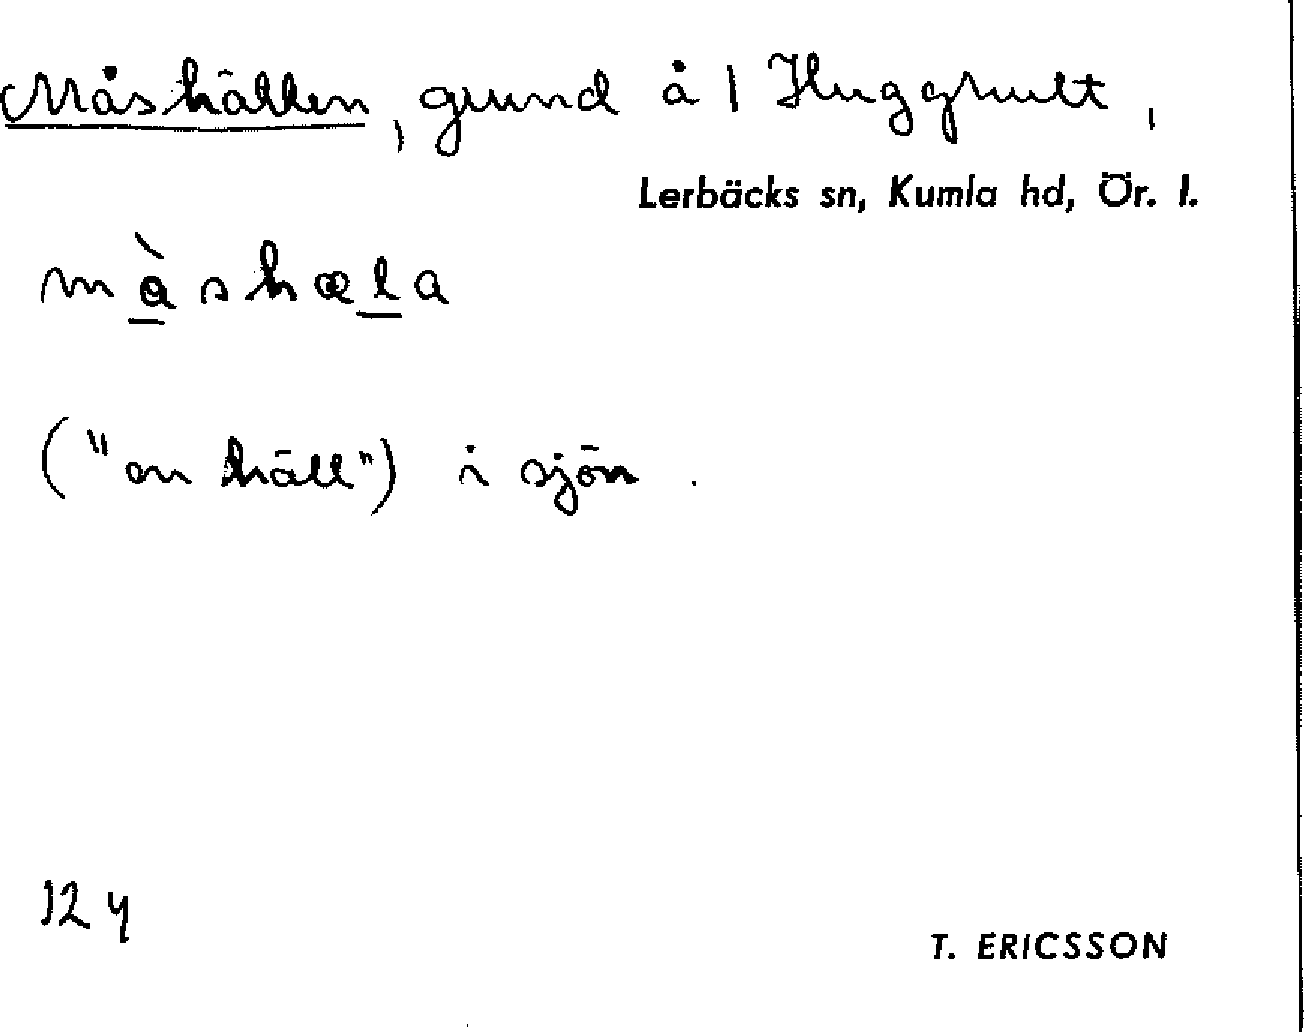 Måshällen, grund å 1 Hugghult,
Lerbäcks sn, Kumla hd, Ör. l.
må̀shæla
("en häll") i sjön.
12 y
T. ERICSSON